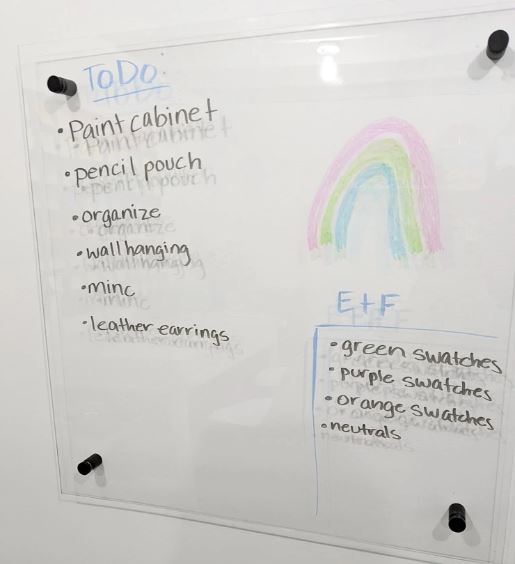 ToDo:
• Paint cabinet
• pencil pouch
• organize
• wall hanging
• minc
• leather earrings
E+F
• green swatches
• purple swatches
• orange swatches
• neutrals